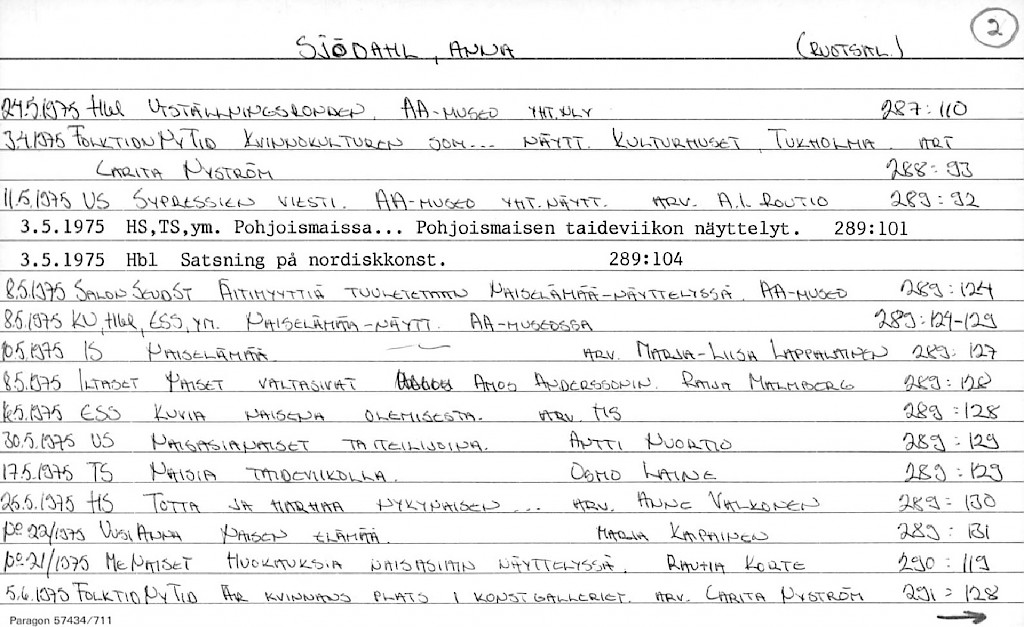 2
SJÖDAHL, ANNA (RUOTSAL.)
24.5.1975 Hbl UTSTÄLLNINGSRONDEN. AA-MUSEO YHT.NLY 287:110
3.4.1975 FOLKTIDNNYTID KVINNOKULTUREN SOM... NÄYTT. KULTURHUSET, TUKHOLMA ART
CARITA NYSTRÖM 288:93
11.5.1975 US SYPRESSIEN VIESTI. AA-MUSEO YHT.NÄYTT. ARV. A.I. ROUTIO 289:92
3.5.1975 HS,TS,ym. Pohjoismaissa... Pohjoismaisen taideviikon näyttelyt. 289:101
3.5.1975 Hbl Satsning på nordiskkonst. 289:104
8.5.1975 SALONSEUDST ÄITIMYYTTIÄ TUULETETAAN NAISELÄMÄÄ-NÄYTTELYSSÄ. AA-MUSEO 289:124
8.5.1975 KU, Hbl, ESS, YM. NAISELÄMÄÄ-NÄYTT. AA-MUSEOSSA 289:124-129
10.5.1975 IS NAISELÄMÄÄ. ARV. MARJA-LIISA LAPPALAINEN 289:127
8.5.1975 ILTASET NAISET VALTASIVAT AMOS ANDERSSONIN. RAIJA MALMBERG 289:128
16.5.1975 ESS KUVIA NAISENA OLEMISESTA. ARV. MS 289:128
30.5.1975 US NAISASIANAISET TAITEILIJOINA. ANTTI NUORTIO 289:129
17.5.1975 TS NAISIA TAIDEVIIKOLLA. OSMO LAINE 289:129
25.5.1975 HS TOTTA JA HARMAA NYKYNAISEN... ARV. ANNE VALKONEN 289:130
No 22/1975 UUSI ANNA NAISEN ELÄMÄÄ. MARJA KAIPAINEN 289:131
No 21/1975 MENAISET HUOKAUKSIA NAISASIAIN NÄYTTELYSSÄ. RAUHA KORTE 290:119
5.6.1975 FOLKTIDNNYTID ÄR KVINNANS PLATS I KONSTGALLERIET. ARV. CARITA NYSTRÖM 291:128
Paragon 57434/711 →